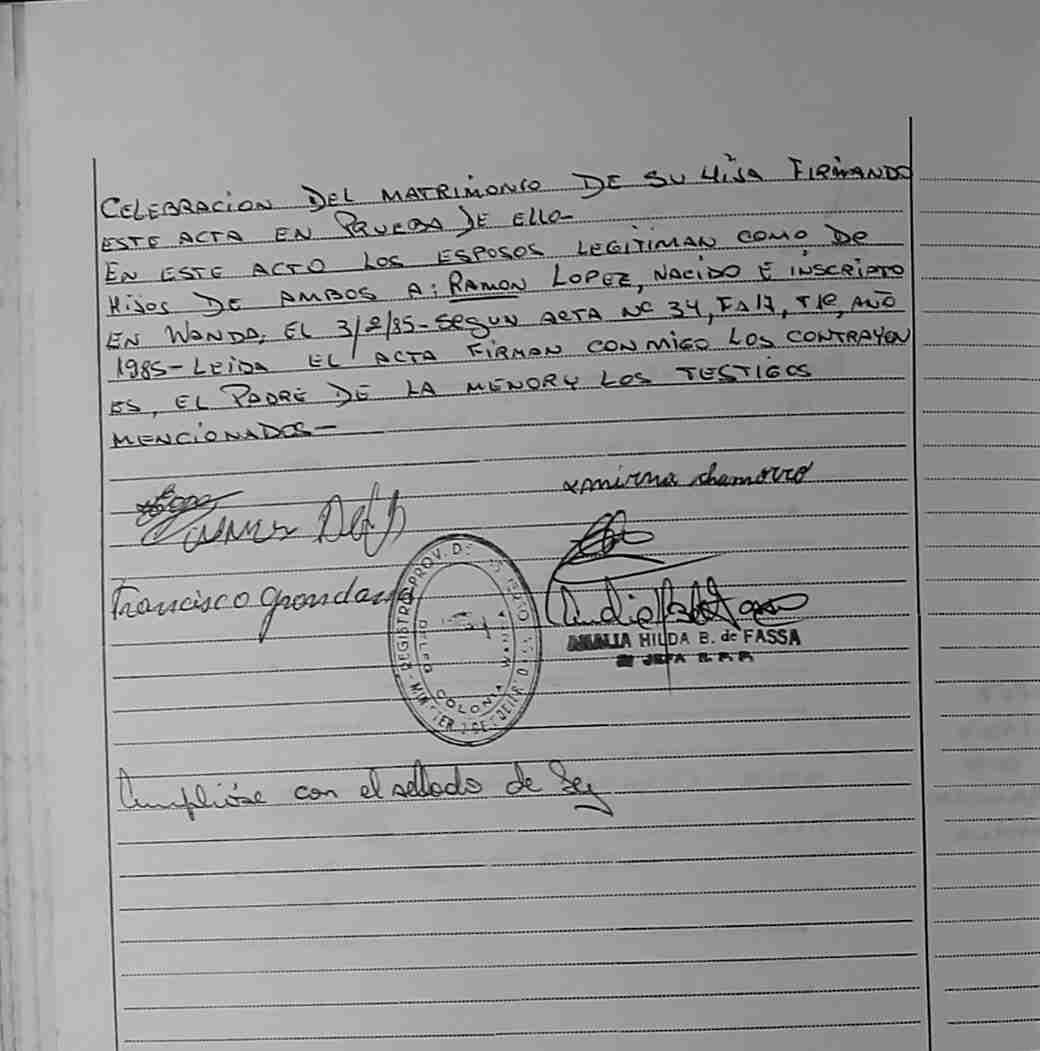 CELEBRACION DEL MATRIMONIO DE SU HIJA FIRMANDO
ESTE ACTA EN PRUEBA DE ELLO-
EN ESTE ACTO LOS ESPOSOS LEGITIMAN COMO DE
HIJOS DE AMBOS A: RAMON LOPEZ, NACIDO E INSCRIPTO
EN WANDA, EL 3/2/85- SEGUN ACTA Nº 34, Fº 17, Tº, AÑO
1985- LEIDA EL ACTA FIRMAN CONMIGO LOS CONTRAYEN
ES, EL PADRE DE LA MENOR Y LOS TESTIGOS
MENCIONADOS-
mirna chamorro
Francisco
REGISTRO PROV. DE
COLONIA WANDA
AMALIA HILDA B. de FASSA
JEFA R. P. P.
Cumplióse con el sellado de Ley